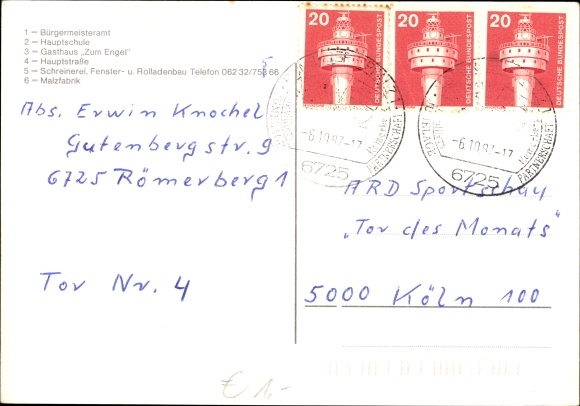 1 – Bürgermeisteramt
2 – Hauptschule
3 – Gasthaus „Zum Engel"
4 – Hauptstraße
5 – Schreinerei, Fenster- u. Rolladenbau Telefon 062 32/75 66
6 – Malzfabrik
Abs. Erwin Knochel
Gutenbergstr. 9
6725 Römerberg 1
Tor Nr. 4
20
DEUTSCHE BUNDESPOST
20
DEUTSCHE BUNDESPOST
20
DEUTSCHE BUNDESPOST
-6.10.82-17
PARTNERSCHAFT
6725
-6.10.82-17
PARTNERSCHAFT
6725
ARD Sportschau
„Tor des Monats"
5000 Köln 100
€ 1,-